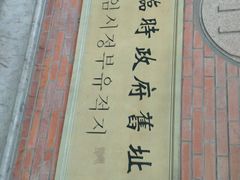 臨時政府舊址
임시정부유적지